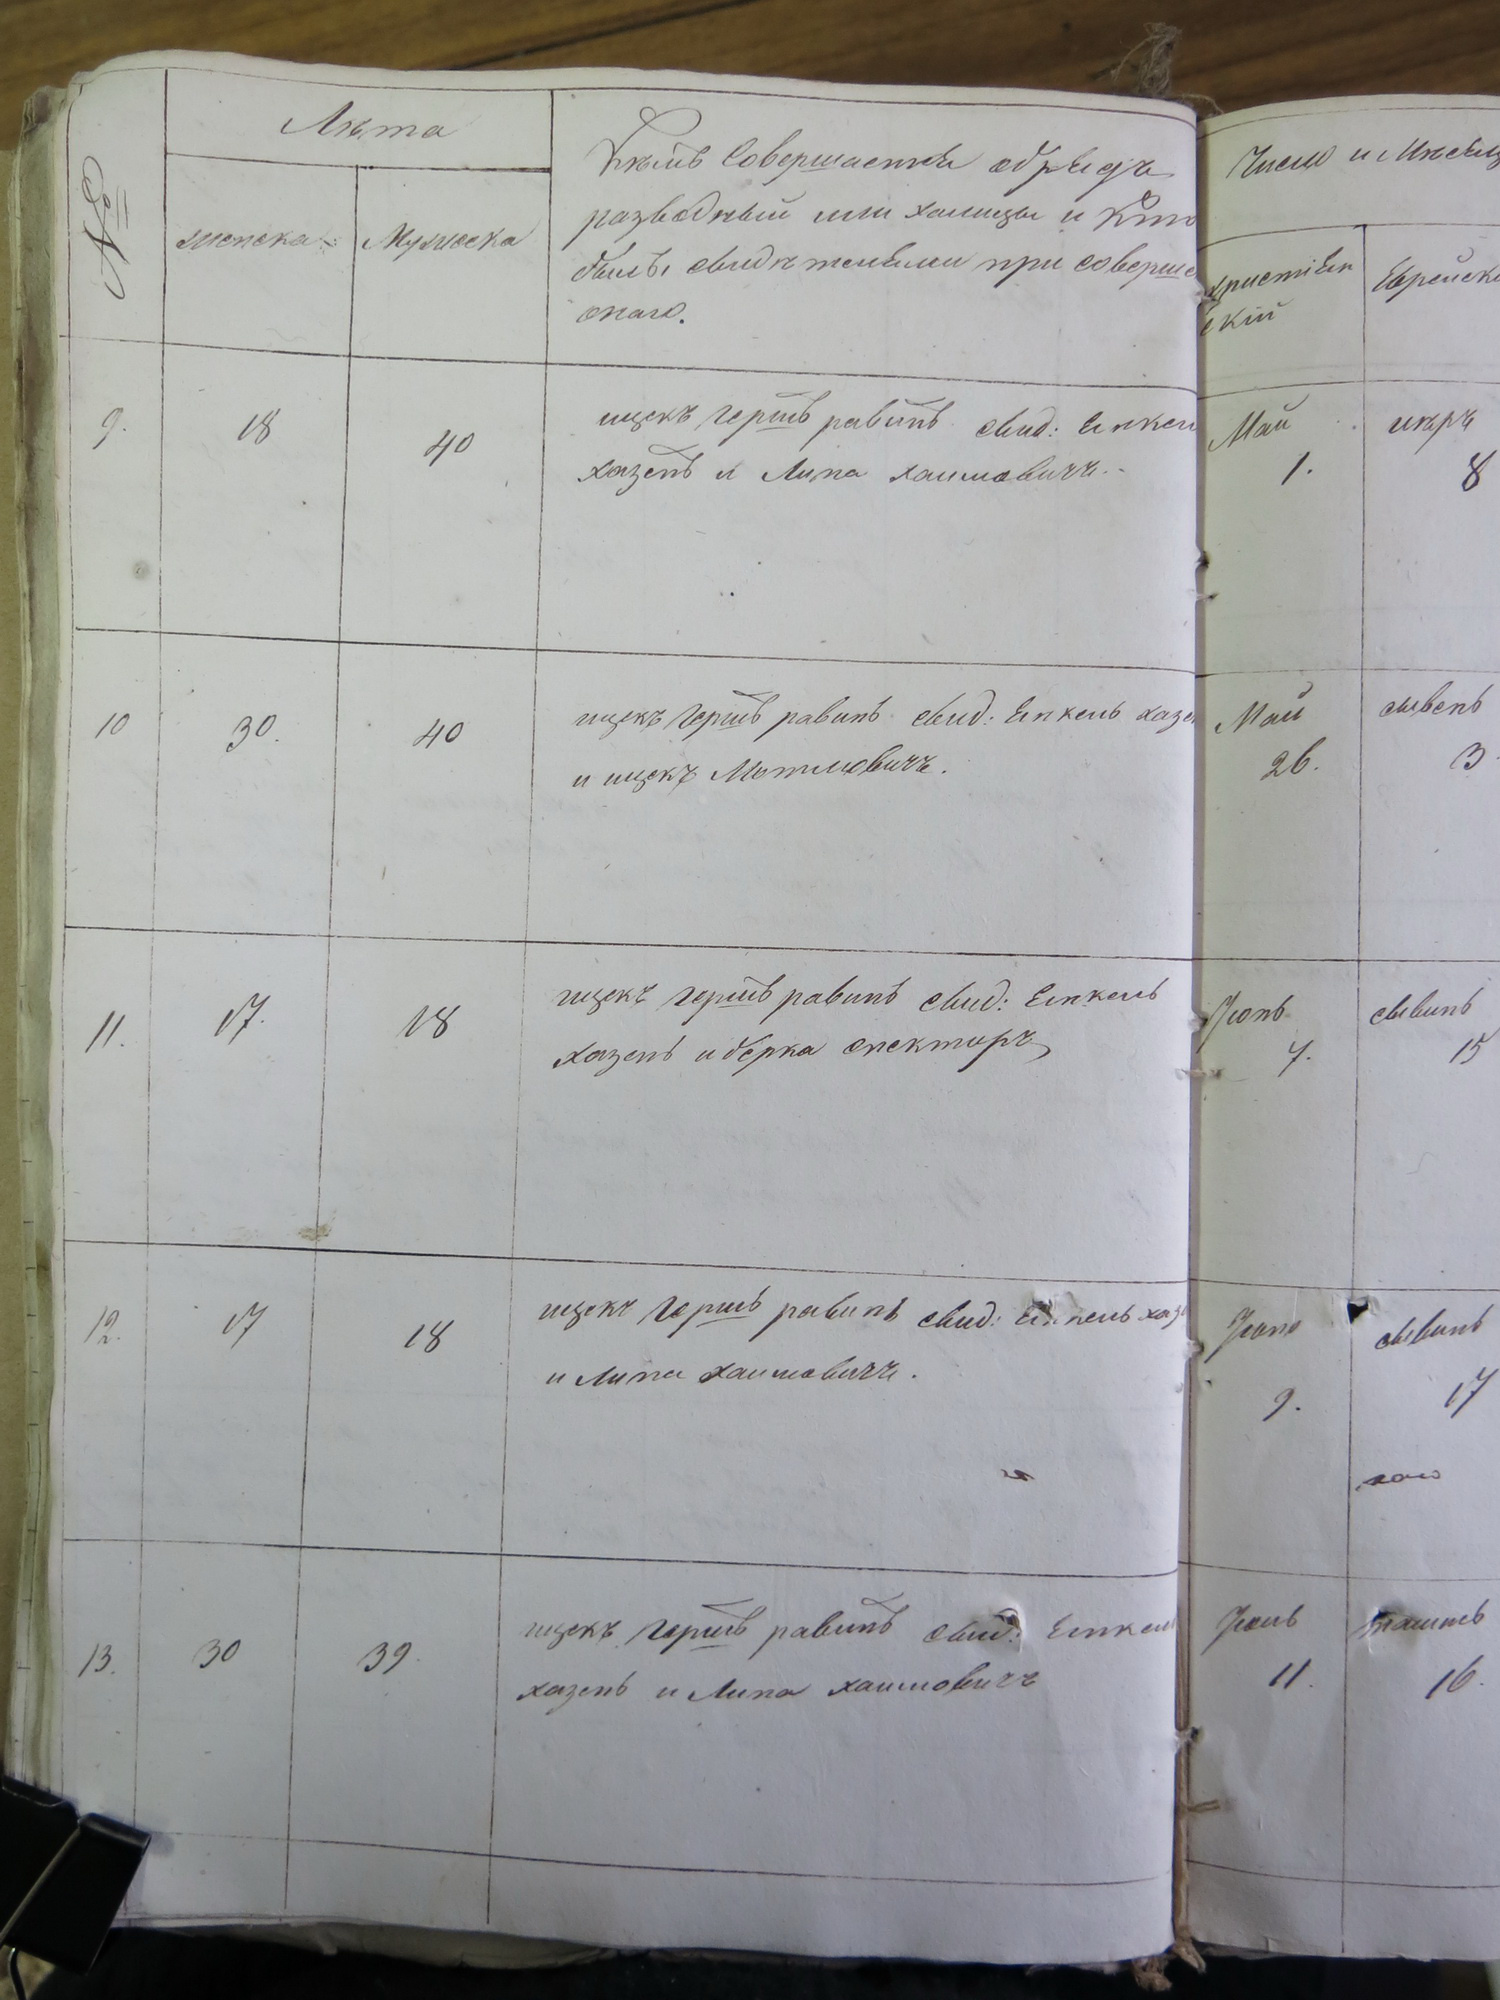 №
Лѣта
женска
Мужеска
Кѣмъ Совершается обрядъ
разводный или халицы и Кто
былъ свидѣтелями при соверше
онаго.
Число и Мѣсяц
христіян
скій
Еврейск
9.
18
40
ицекъ Гершъ равинъ свид: Еинкель
хазенъ и Липа хаимовичъ.
Май
1.
иаръ
8
10
30.
40
ицекъ Гершъ равинъ свид: Еинкель хазе
и ицекъ Мотиовичъ.
Май
26.
сывенъ
3
11.
17.
18
ицекъ Гершъ равинъ свид: Еинкель
хазенъ и берка спекторъ
Іюнь
7.
сывинъ
15
12.
17
18
ицекъ Гершъ равинъ свид: Еинкель хаз
и Липа хаимовичъ.
Іюнь
9.
сывинъ
17
13.
30
39.
ицекъ Гершъ равинъ свид: Еинкель
хазенъ и Липа хаимовичъ
Іюль
11.
16.